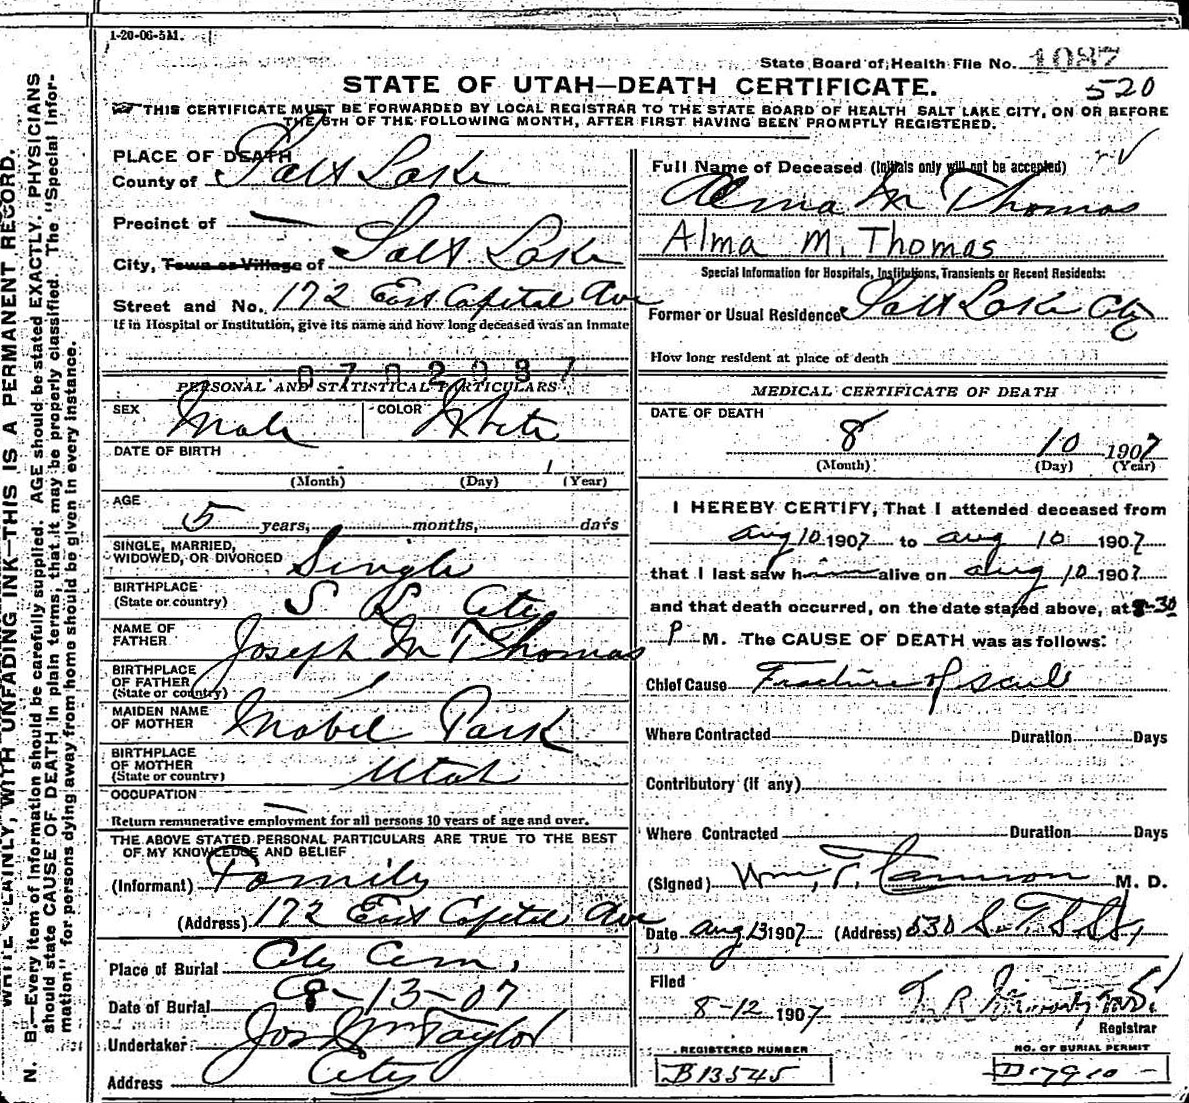 1-20-06-5M.
State Board of Health File No. 1087
520
STATE OF UTAH—DEATH CERTIFICATE.
THIS CERTIFICATE MUST BE FORWARDED BY LOCAL REGISTRAR TO THE STATE BOARD OF HEALTH SALT LAKE CITY, ON OR BEFORE
THE 5TH OF THE FOLLOWING MONTH, AFTER FIRST HAVING BEEN PROMPTLY REGISTERED.
WRITE PLAINLY, WITH UNFADING INK—THIS IS A PERMANENT RECORD.
N. B.—Every item of information should be carefully supplied. AGE should be stated EXACTLY. PHYSICIANS
should state CAUSE OF DEATH in plain terms, that it may be properly classified. The "Special Infor-
mation" for persons dying away from home should be given in every instance.
PLACE OF DEATH
County of Salt Lake
Precinct of —
City, Town or Village of Salt Lake
Street and No. 172 East Capitol Ave
If in Hospital or Institution, give its name and how long deceased was an inmate
0702087
PERSONAL AND STATISTICAL PARTICULARS
SEX Male COLOR White
DATE OF BIRTH
(Month) (Day) (Year)
AGE
5 years, months, days
SINGLE, MARRIED,
WIDOWED, OR DIVORCED Single
BIRTHPLACE
(State or country) S L City
NAME OF
FATHER Joseph M Thomas
BIRTHPLACE
OF FATHER
(State or country)
MAIDEN NAME
OF MOTHER Mabel Park
BIRTHPLACE
OF MOTHER
(State or country) Utah
OCCUPATION —
Return remunerative employment for all persons 10 years of age and over.
THE ABOVE STATED PERSONAL PARTICULARS ARE TRUE TO THE BEST
OF MY KNOWLEDGE AND BELIEF
(Informant) Family
(Address) 172 East Capitol Ave
Place of Burial City Cem,
Date of Burial 8-13-07
Undertaker Jos Wm Taylor
Address City
Full Name of Deceased (Initials only will not be accepted)
Alma M Thomas
Alma M. Thomas
Special Information for Hospitals, Institutions, Transients or Recent Residents:
Former or Usual Residence Salt Lake City
How long resident at place of death
MEDICAL CERTIFICATE OF DEATH
DATE OF DEATH
8 10 1907
(Month) (Day) (Year)
I HEREBY CERTIFY, That I attended deceased from
Aug 10 1907 to Aug 10 1907
that I last saw him alive on Aug 10 1907
and that death occurred, on the date stated above, at 8-30
P M. The CAUSE OF DEATH was as follows:
Chief Cause Fracture of scul
Where Contracted Duration Days
Contributory (if any)
Where Contracted Duration Days
(Signed) Wm. T. Cannon M. D.
Date Aug 13 1907 (Address) 530
Filed
8-12 1907
Registrar
REGISTERED NUMBER
B13545
NO. OF BURIAL PERMIT
D 7910